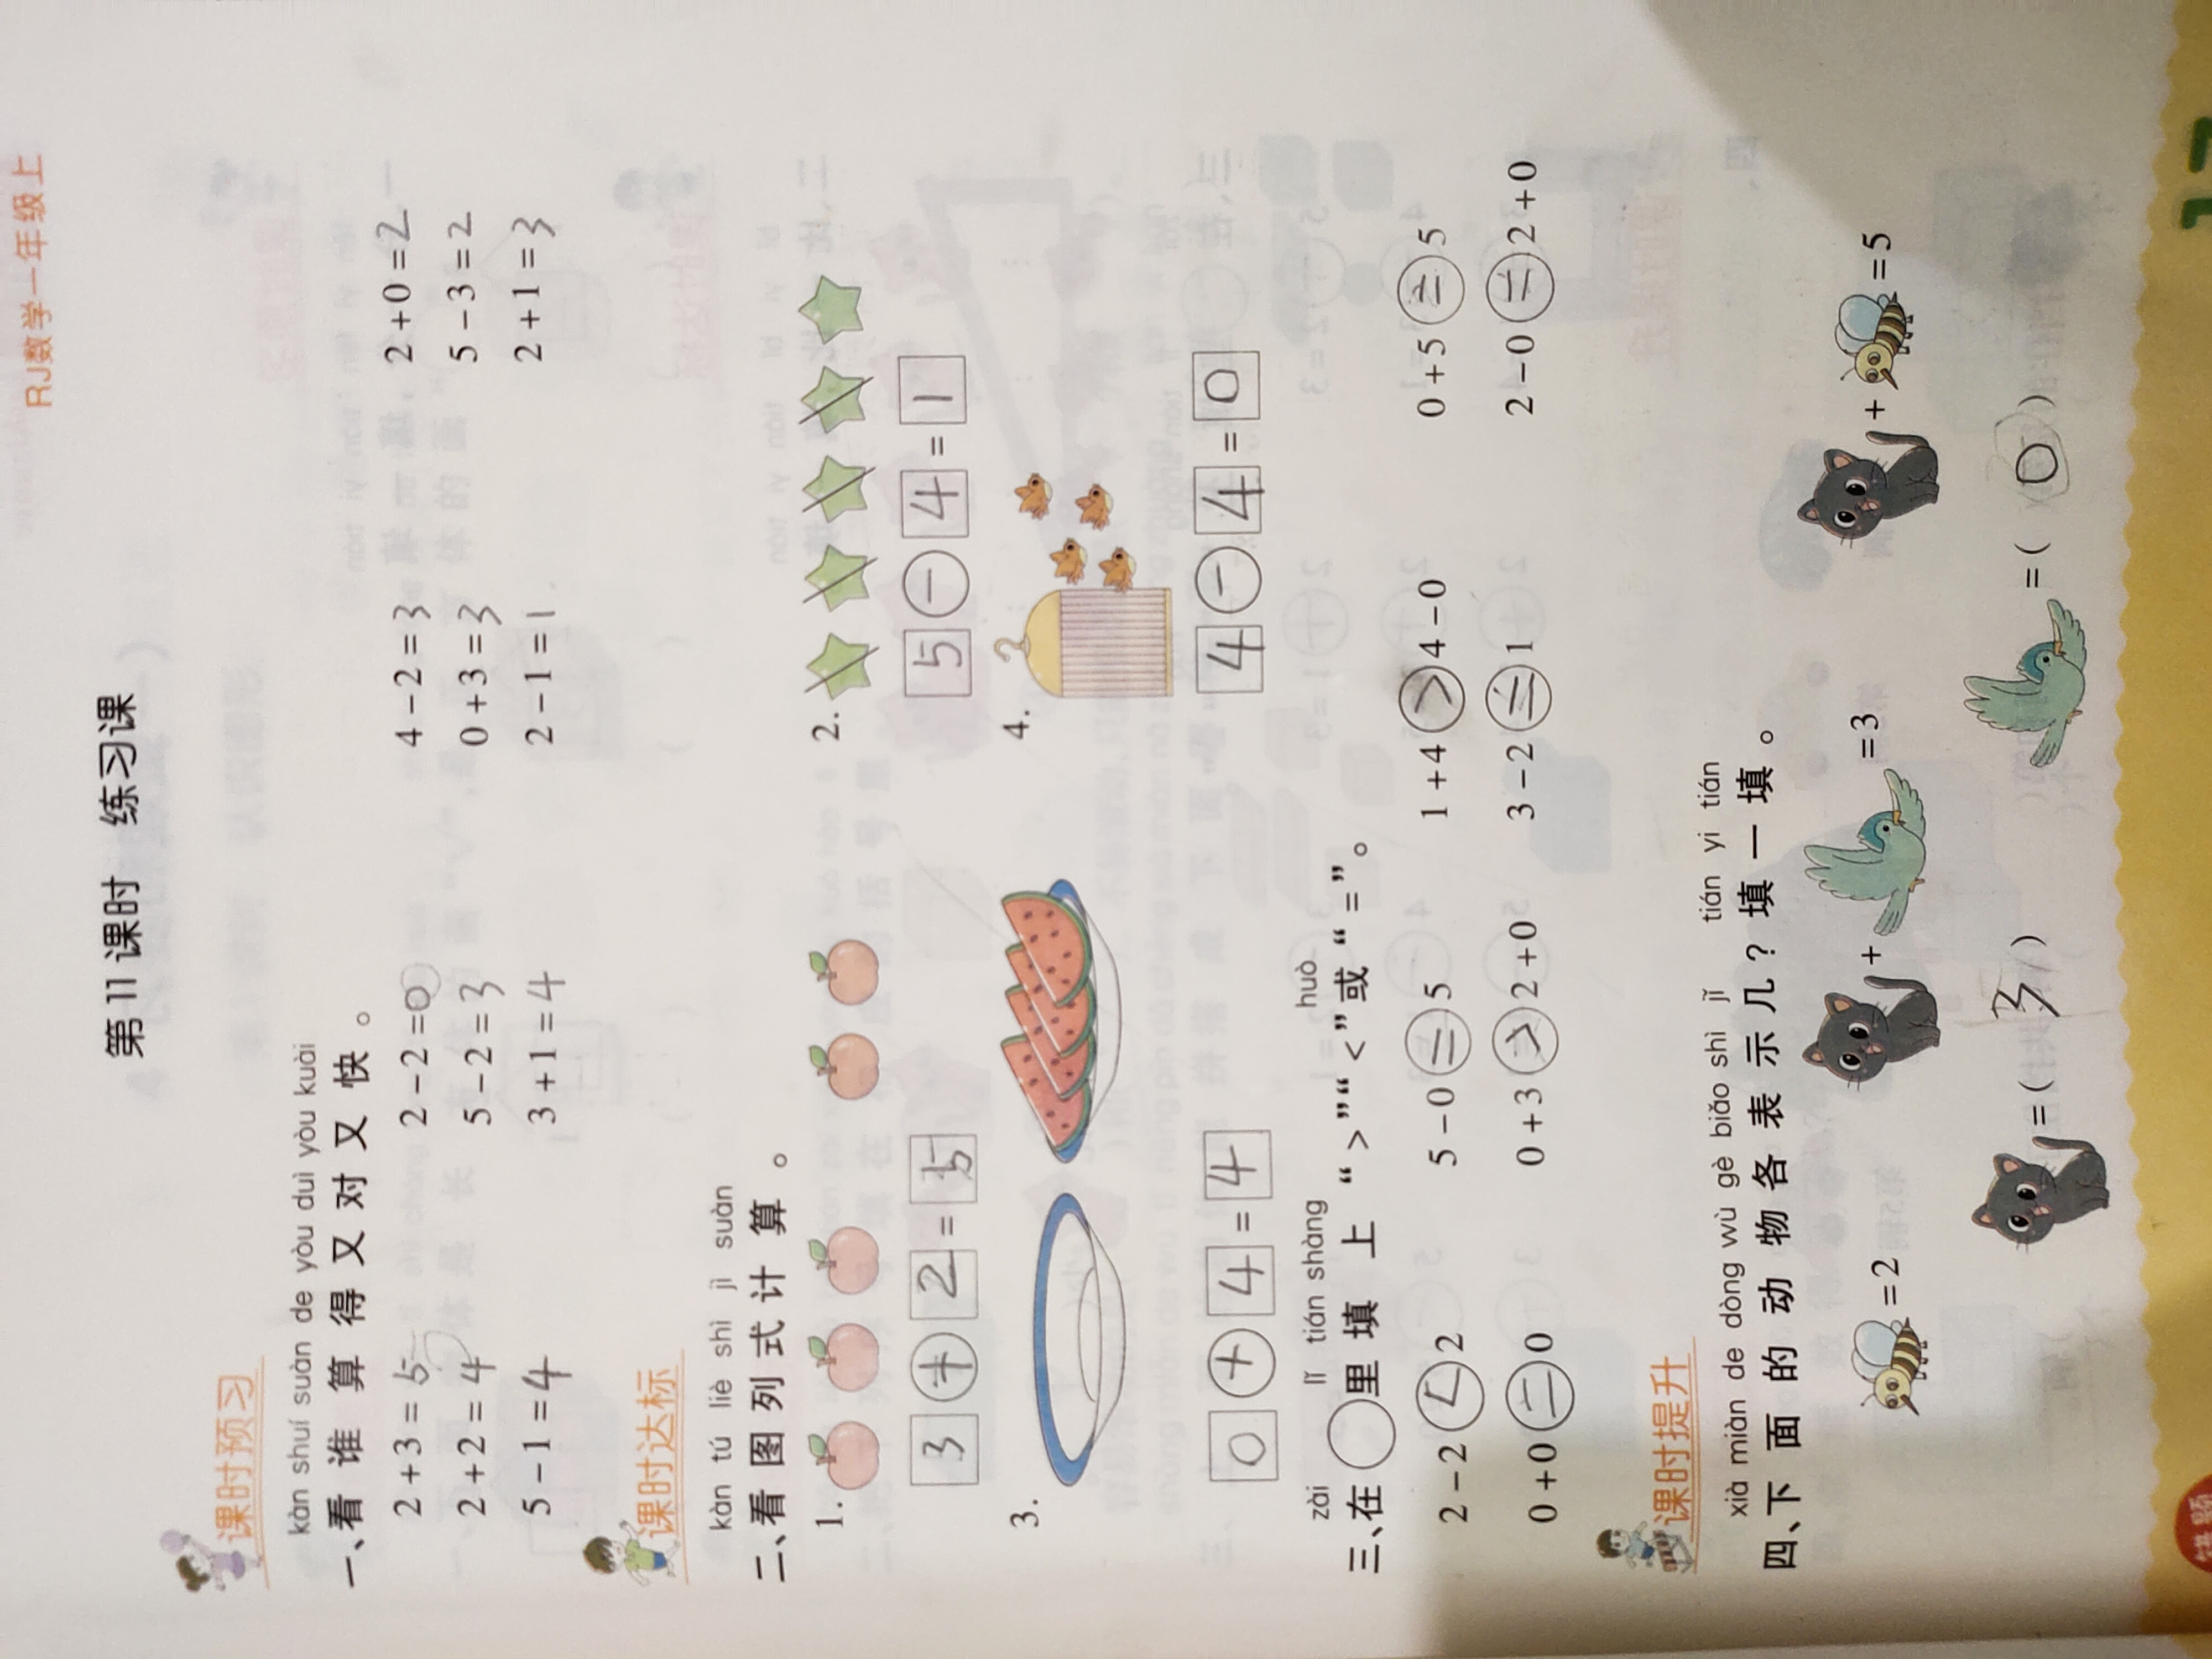 RJ数学一年级上
第11课时 练习课
课时预习
kàn shuí suàn de yòu duì yòu kuài
一、看谁算得又对又快。
2+3=5 2-2=0 4-2=3 2+0=2
2+2=4 5-2=3 0+3=3 5-3=2
5-1=4 3+1=4 2-1=1 2+1=3
课时达标
kàn tú liè shì jì suàn
二、看图列式计算。
1. 2.
3+2=5 5-4=1
3. 4.
0+4=4 4-4=0
zài lǐ tián shàng huò
三、在○里填上“>”“<”或“=”。
2-2<2 5-0=5 1+4>4-0 0+5=5
0+0=0 0+3>2+0 3-2=1 2-0=2+0
课时提升
xià miàn de dòng wù gè biǎo shì jǐ tián yi tián
四、下面的动物各表示几?填一填。
=2 + =3 + =5
=( 3 ) =( 0 )